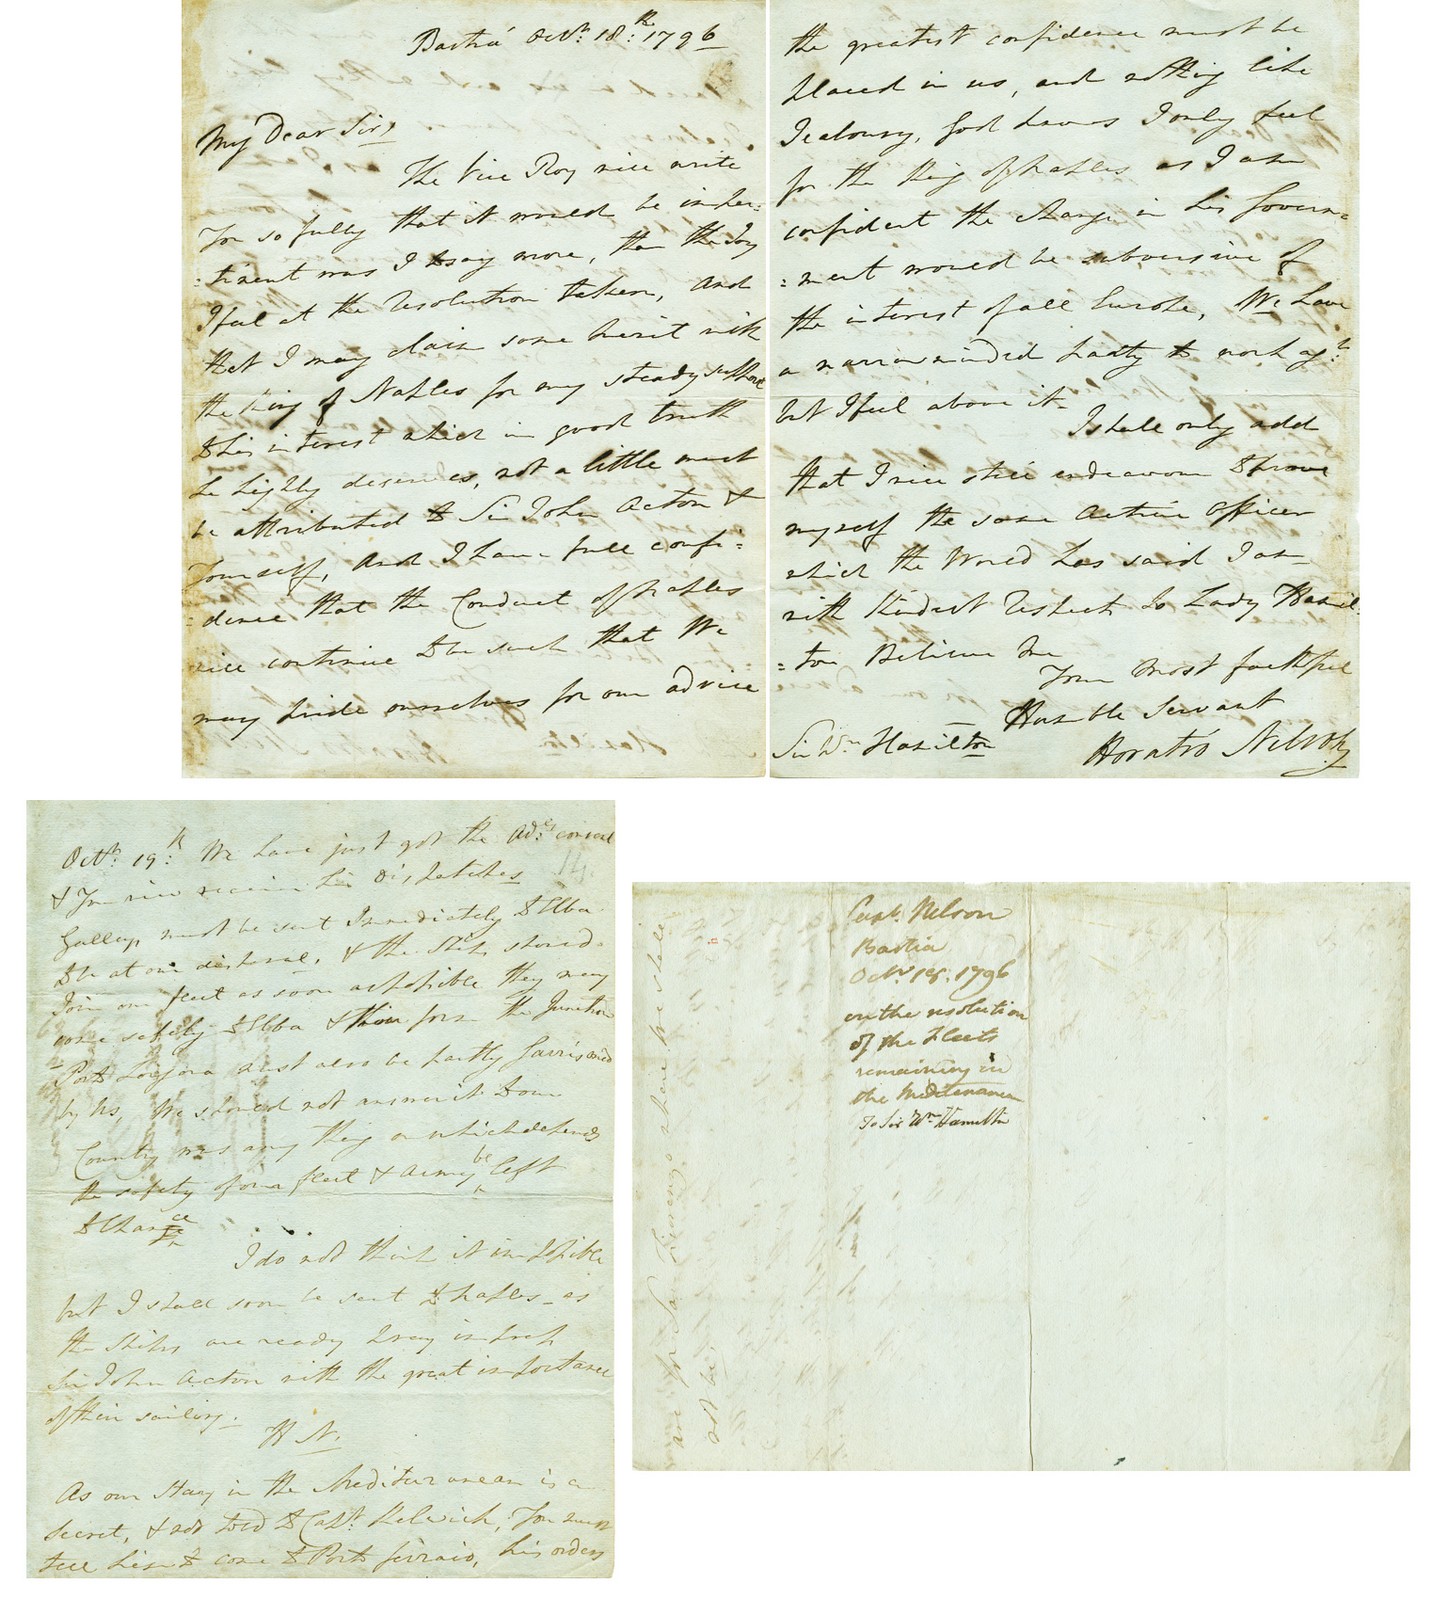 Bastia Octr: 18:th 1796
My Dear Sir,
The Vice Roy will write
You so fully that it would be imper:
:tinent was I to say more, than the Joy
I feel at the resolution taken, and
that I may claim some merit with
the King of Naples for my steady support
to his interest which in good truth
he highly deserves, not a little must
be attributed to Sir John Acton &
Yourself, and I have full confi:
:dence that the Conduct of Naples
will continue to be such that We
may pride ourselves for our advice
the greatest confidence must be
placed in us, and nothing like
Jealousy, God knows I only feel
for the King of Naples as I am
confident the change in his Govern=
:ment would be subversive of
the interest of all Europe, We have
a narrow minded party to work agt:
but I feel above it.
I shall only add
that I will still endeavour to prove
myself the same Active Officer
which the World has said I am
with kindest respects to Lady Hamil
=ton Believe Me
Your most faithful
Humble Servant
Sir Wm Hamilton
Horatio Nelson
Octr: 19:th We have just got the Ad:es
& You will receive his dispatches
Galleys must be sent immediately to Elba
to be at our disposal, & the Ships should
Join our fleet as soon as possible they may
come safely to Elba & there form the Junction
Porto Longona must also be partly Garrisoned
by us, We should not answer it to our
Country was any thing on which depends
the safety of our fleet & Army be left
to Chance
I do not think it impossible
but I shall soon be sent to Naples as
the Ships are ready pray impress
Sir John Acton with the great importance
of their sailing.
H N.
As our Stay in the Mediterranean is a
Secret, & not told to Capt: Kelwick, You must
tell him to come to Porto ferraio, his orders
are for Sn. Fiorenzo where we shall
not be.
Capt. Nelson
Bastia
Octr 18: 1796
on the resolution
of the Fleets
remaining in
the Mediterranean
To Sir Wm Hamilton